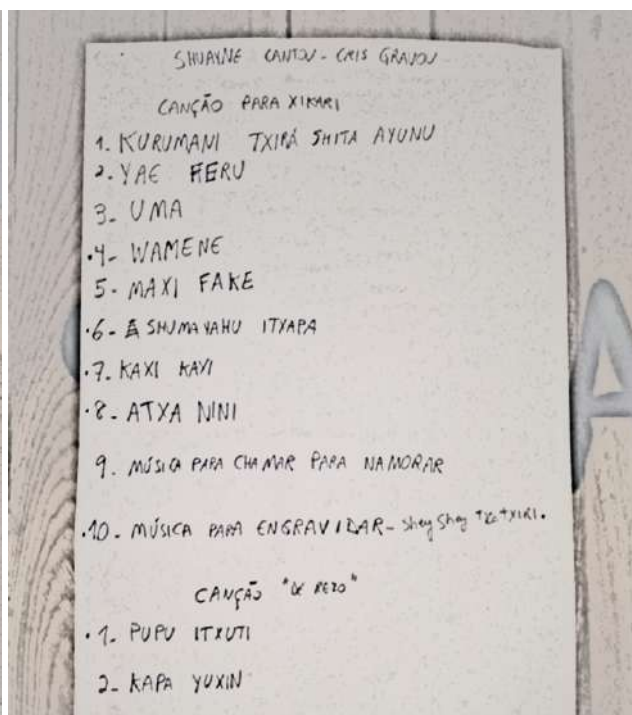 SHUAYNE CANTOU - CRIS GRAVOU
CANÇÃO PARA XIKARI
1. KURUMANI TXIPÁ SHITA AYUNU
2. YAE FERU
3_ UMA
.4- WAMENE
5- MAXI FAKE
.6- SHUMAYAHU ITXAPA
.7. KAXI KAXI
.8- ATXA NINI
9. MÚSICA PARA CHAMAR PARA NAMORAR
.10- MÚSICA PARA ENGRAVIDAR - Shey Shey TXATXIRI.
CANÇÃO "DE REZO"
.1. PUPU ITXUTI
2- KAPA YUXIN